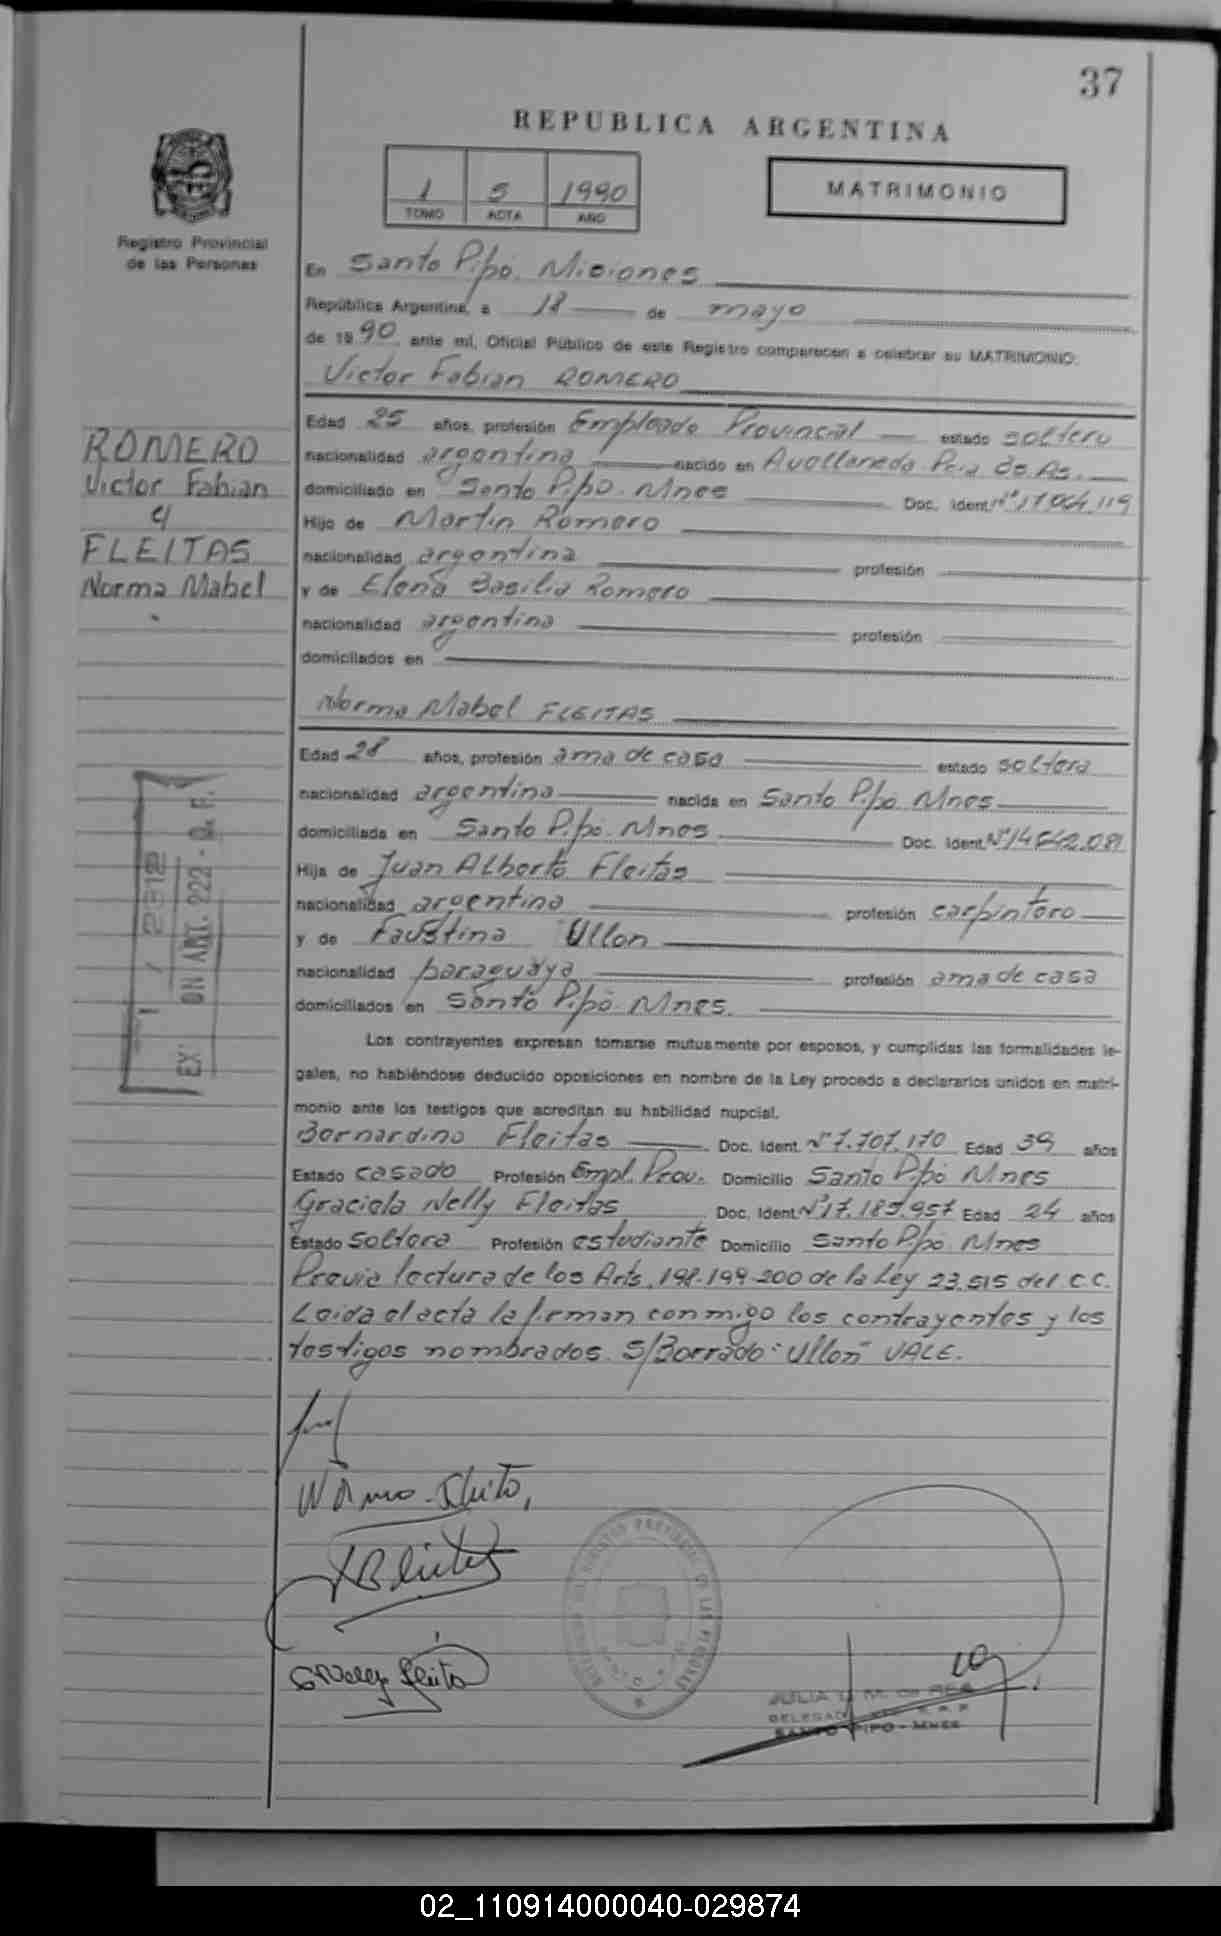 37
REPUBLICA ARGENTINA
1 5 1990
TOMO ACTA AÑO
MATRIMONIO
Registro Provincial
de las Personas
En Santo Pipó. Misiones
República Argentina, a 18 de mayo
de 1990 ante mí, Oficial Público de este Registro comparecen a celebrar su MATRIMONIO:
Victor Fabian ROMERO
Edad 25 años, profesión Empleado Provincial estado soltero
nacionalidad argentina nacido en Avellaneda Pcia Bs. As.
domiciliado en Santo Pipó. Mnes Doc. Ident. Nº 17.064.119
Hijo de Martin Romero
nacionalidad argentina profesión
y de Elena Basilia Romero
nacionalidad argentina profesión
domiciliados en
ROMERO
Victor Fabian
c/
FLEITAS
Norma Mabel
Norma Mabel FLEITAS
Edad 28 años, profesión ama de casa estado soltera
nacionalidad argentina nacida en Santo Pipó Mnes
domiciliada en Santo Pipó. Mnes Doc. Ident. Nº 14.642.081
Hija de Juan Alberto Fleitas
nacionalidad argentina profesión carpintero
y de Faustina Ullon
nacionalidad paraguaya profesión ama de casa
domiciliados en Santo Pipó. Mnes.
Los contrayentes expresan tomarse mutuamente por esposos, y cumplidas las formalidades le-
gales, no habiéndose deducido oposiciones en nombre de la Ley procedo a declararlos unidos en matri-
monio ante los testigos que acreditan su habilidad nupcial.
Bernardino Fleitas Doc. Ident. Nº 7.707.170 Edad 39 años
Estado casado Profesión Empl. Prov. Domicilio Santo Pipó Mnes
Graciela Nelly Fleitas Doc. Ident. Nº 17.185.957 Edad 24 años
Estado soltera Profesión estudiante Domicilio Santo Pipó Mnes
Previa lectura de los Arts. 198-199-200 de la Ley 23.515 del C.C.
Leida el acta la firman conmigo los contrayentes y los
testigos nombrados. S/Borrado: "Ullon" VALE.
ON ART. 222 -
SANTO PIPO - MNES
02_110914000040-029874